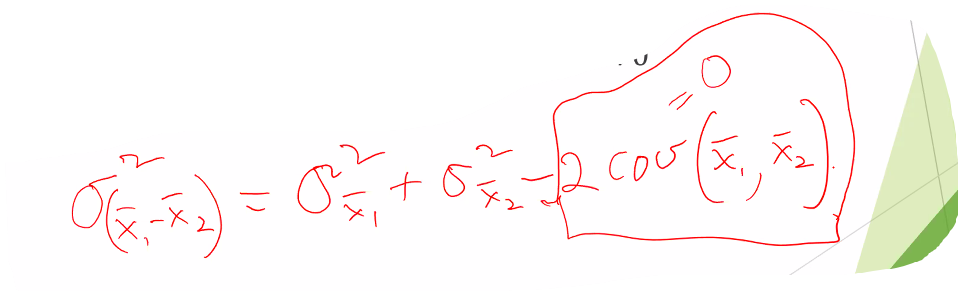 = 0
σ²(x̄₁-x̄₂) = σ²x̄₁ + σ²x̄₂ - 2 cov(x̄₁, x̄₂)